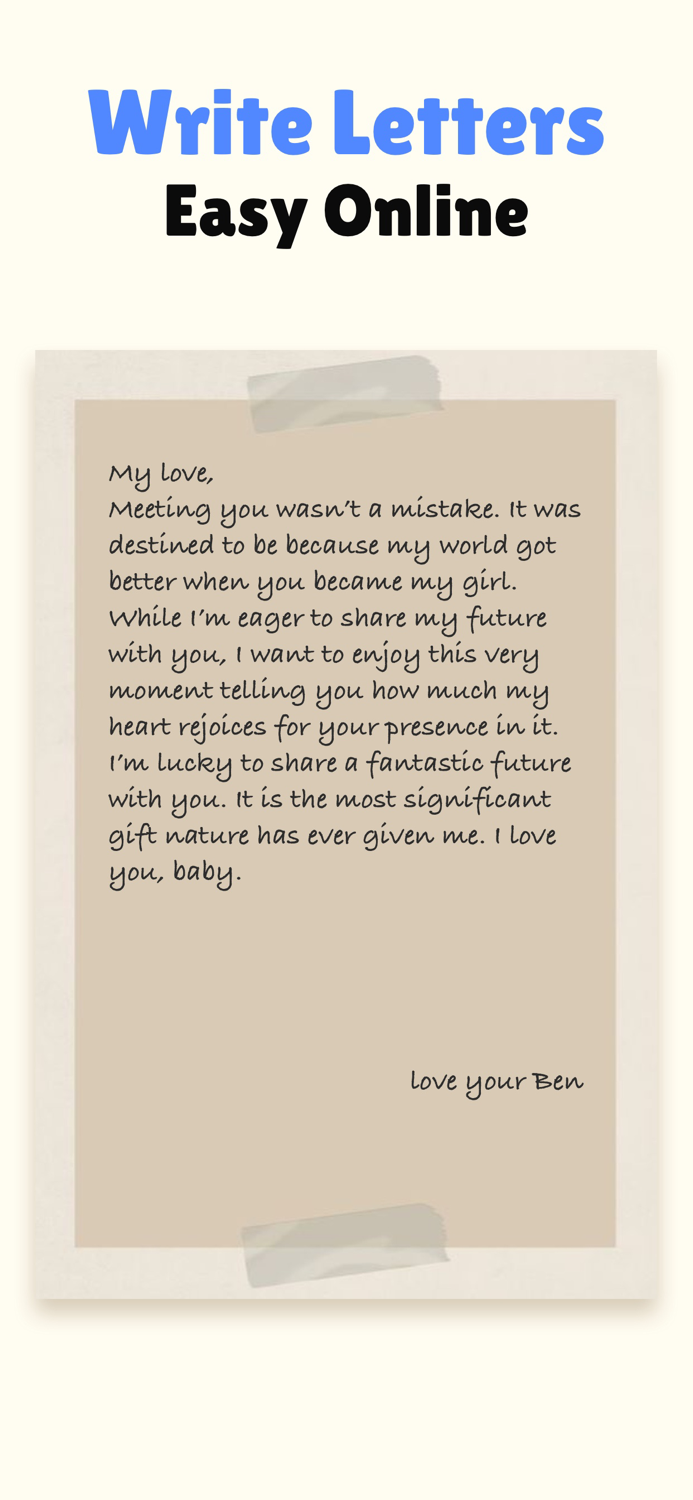 Write Letters
Easy Online
My love,
Meeting you wasn't a mistake. It was
destined to be because my world got
better when you became my girl.
While I'm eager to share my future
with you, I want to enjoy this very
moment telling you how much my
heart rejoices for your presence in it.
I'm lucky to share a fantastic future
with you. It is the most significant
gift nature has ever given me. I love
you, baby.
love your Ben